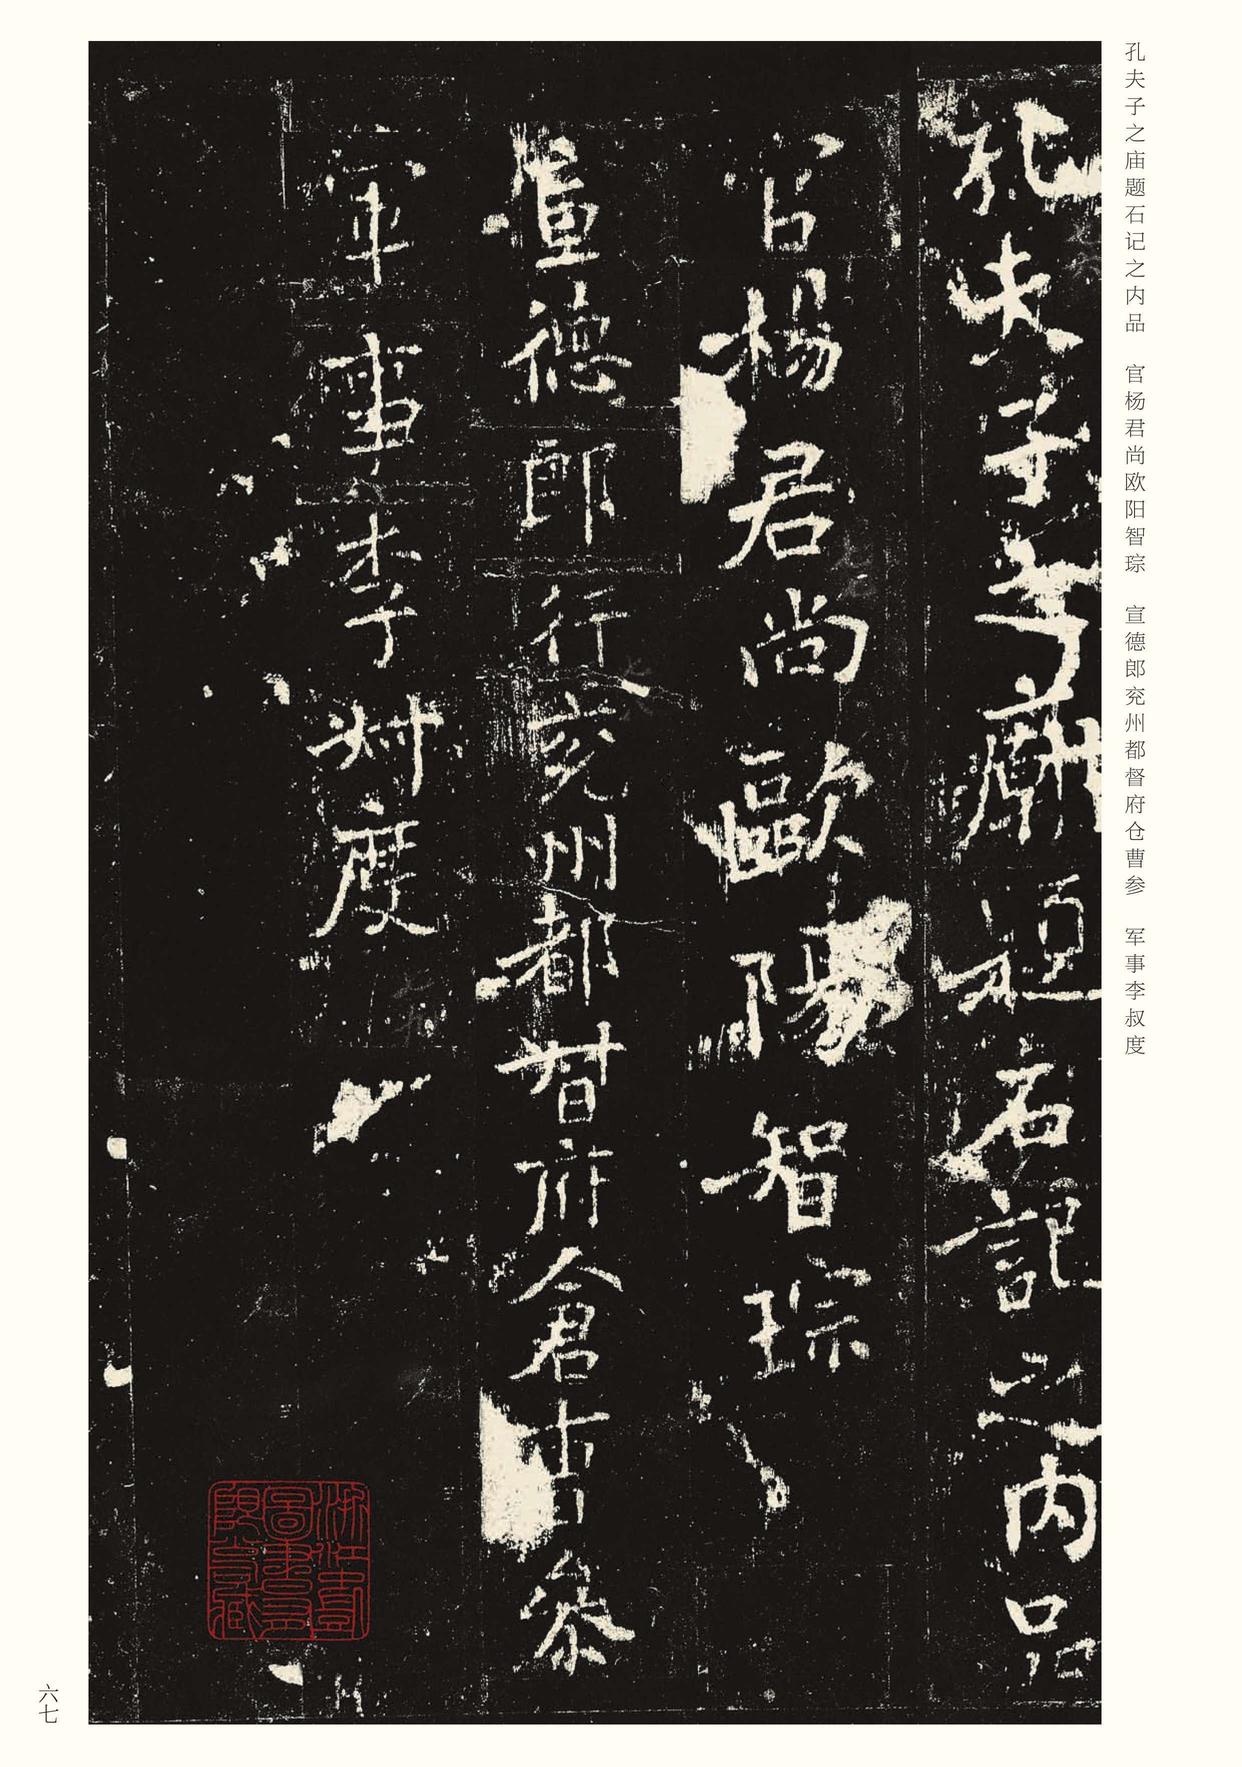 孔夫子之庙题石记之内品　官杨君尚欧阳智琮　宣德郎兖州都督府仓曹参　军事李叔度
孔夫子之廟題石記之内品
官楊君尚歐陽智琮
宣德郎行兗州都督府倉曹參
軍事李叔度
六七